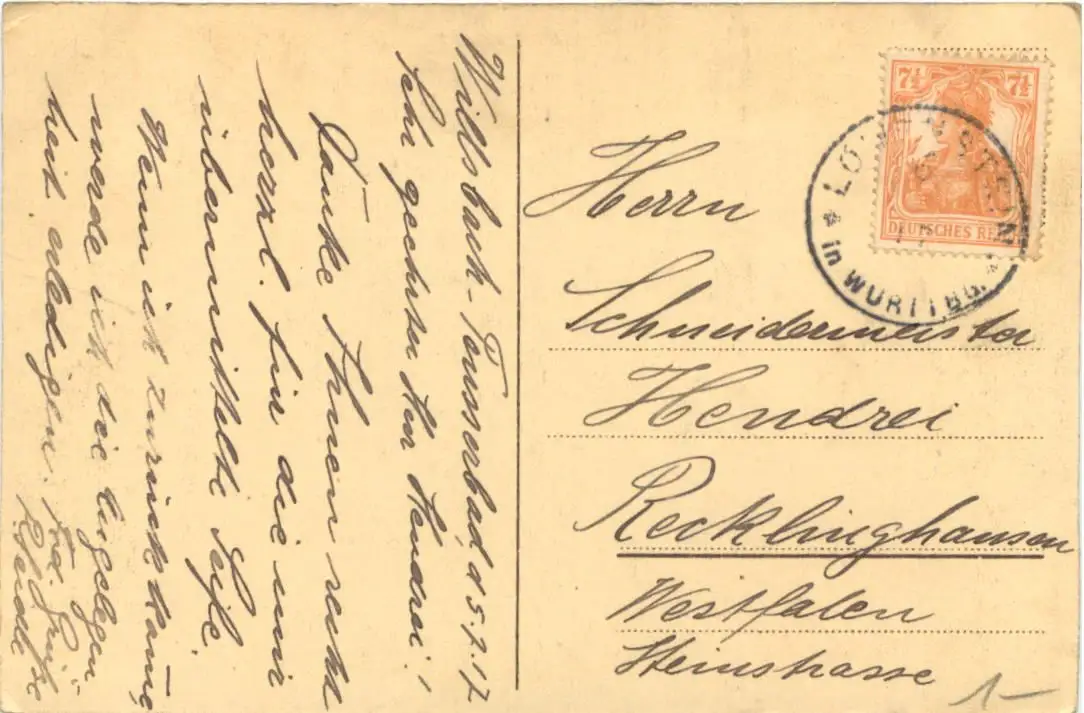 Willsbach-Teusserbad, d 5.7.17
Sehr geehrter Herr Hendrei!
Danke Ihnen recht
herzl. für die mir
übermittelte Seife.
Wenn ich zurückkomme
werde ich die Angelegen-
heit erledigen. Frdl. Grüße
Herrn
Schneidermeister
Hendrei
Recklinghausen
Westfalen
Steinstrasse
7½ 7½
DEUTSCHES REICH
LÖWENSTEIN
in WÜRTTBG.
1-